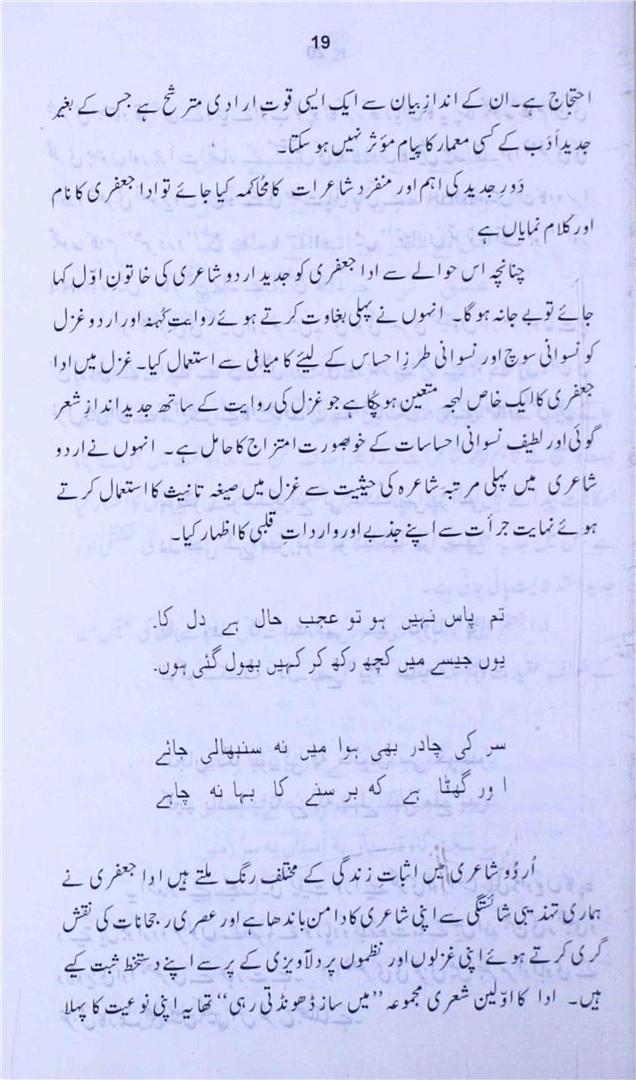 19
احتجاج ہے۔ان کے اندازِ بیان سے ایک ایسی قوت ارادی مترشح ہے جس کے بغیر
جدید اَدَب کے کسی معمار کا پیام مؤثر نہیں ہو سکتا۔
دَورِ جدید کی اہم اور منفرد شاعرات کا محاکمہ کیا جائے تو ادا جعفری کا نام
اور کلام نمایاں ہے
چنانچہ اس حوالے سے ادا جعفری کو جدید اردو شاعری کی خاتونِ اوّل کہا
جائے تو بے جا نہ ہو گا۔ انہوں نے پہلی بغاوت کرتے ہوئے روایتِ کُہنہ اور اردو غزل
کو نسوانی سوچ اور نسوانی طرزِ احساس کے لیئے کامیابی سے استعمال کیا۔ غزل میں ادا
جعفری کا ایک خاص لہجہ متعین ہو چکا ہے جو غزل کی روایت کے ساتھ جدید اندازِ شعر
گوئی اور لطیف نسوانی احساسات کے خوبصورت امتزاج کا حامل ہے۔ انہوں نے اردو
شاعری میں پہلی مرتبہ شاعرہ کی حیثیت سے غزل میں صیغہ تانیث کا استعمال کرتے
ہوئے نہایت جرأت سے اپنے جذبے اور وارداتِ قلبی کا اظہار کیا۔
تم پاس نہیں ہو تو عجب حال ہے دل کا.
یوں جیسے میں کچھ رکھ کر کہیں بھول گئی ہوں.
سر کی چادر بھی ہوا میں نہ سنبھالی جائے
اور گھٹا ہے کہ برسنے کا بہا نہ چاہے
اُردُو شاعری میں اثبات زندگی کے مختلف رنگ ملتے ہیں ادا جعفری نے
ہماری تہذیبی شائستگی سے اپنی شاعری کا دامن باندھا ہے اور عصری رجحانات کی نقش
گری کرتے ہوئے اپنی غزلوں اور نظموں پر دلآویزی کے پر سے اپنے دستخط ثبت کیے
ہیں۔ ادا کا اوّلین شعری مجموعہ ”میں ساز ڈھونڈتی رہی“ تھا یہ اپنی نوعیت کا پہلا